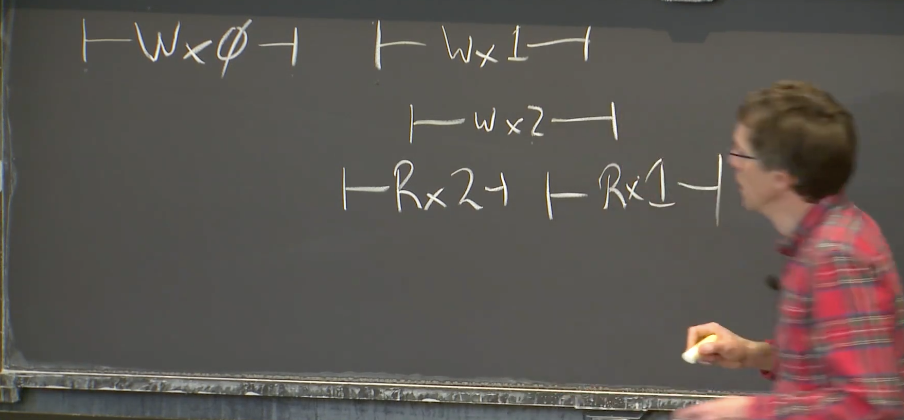 Wx0 Wx1
Wx2
Rx2 Rx1